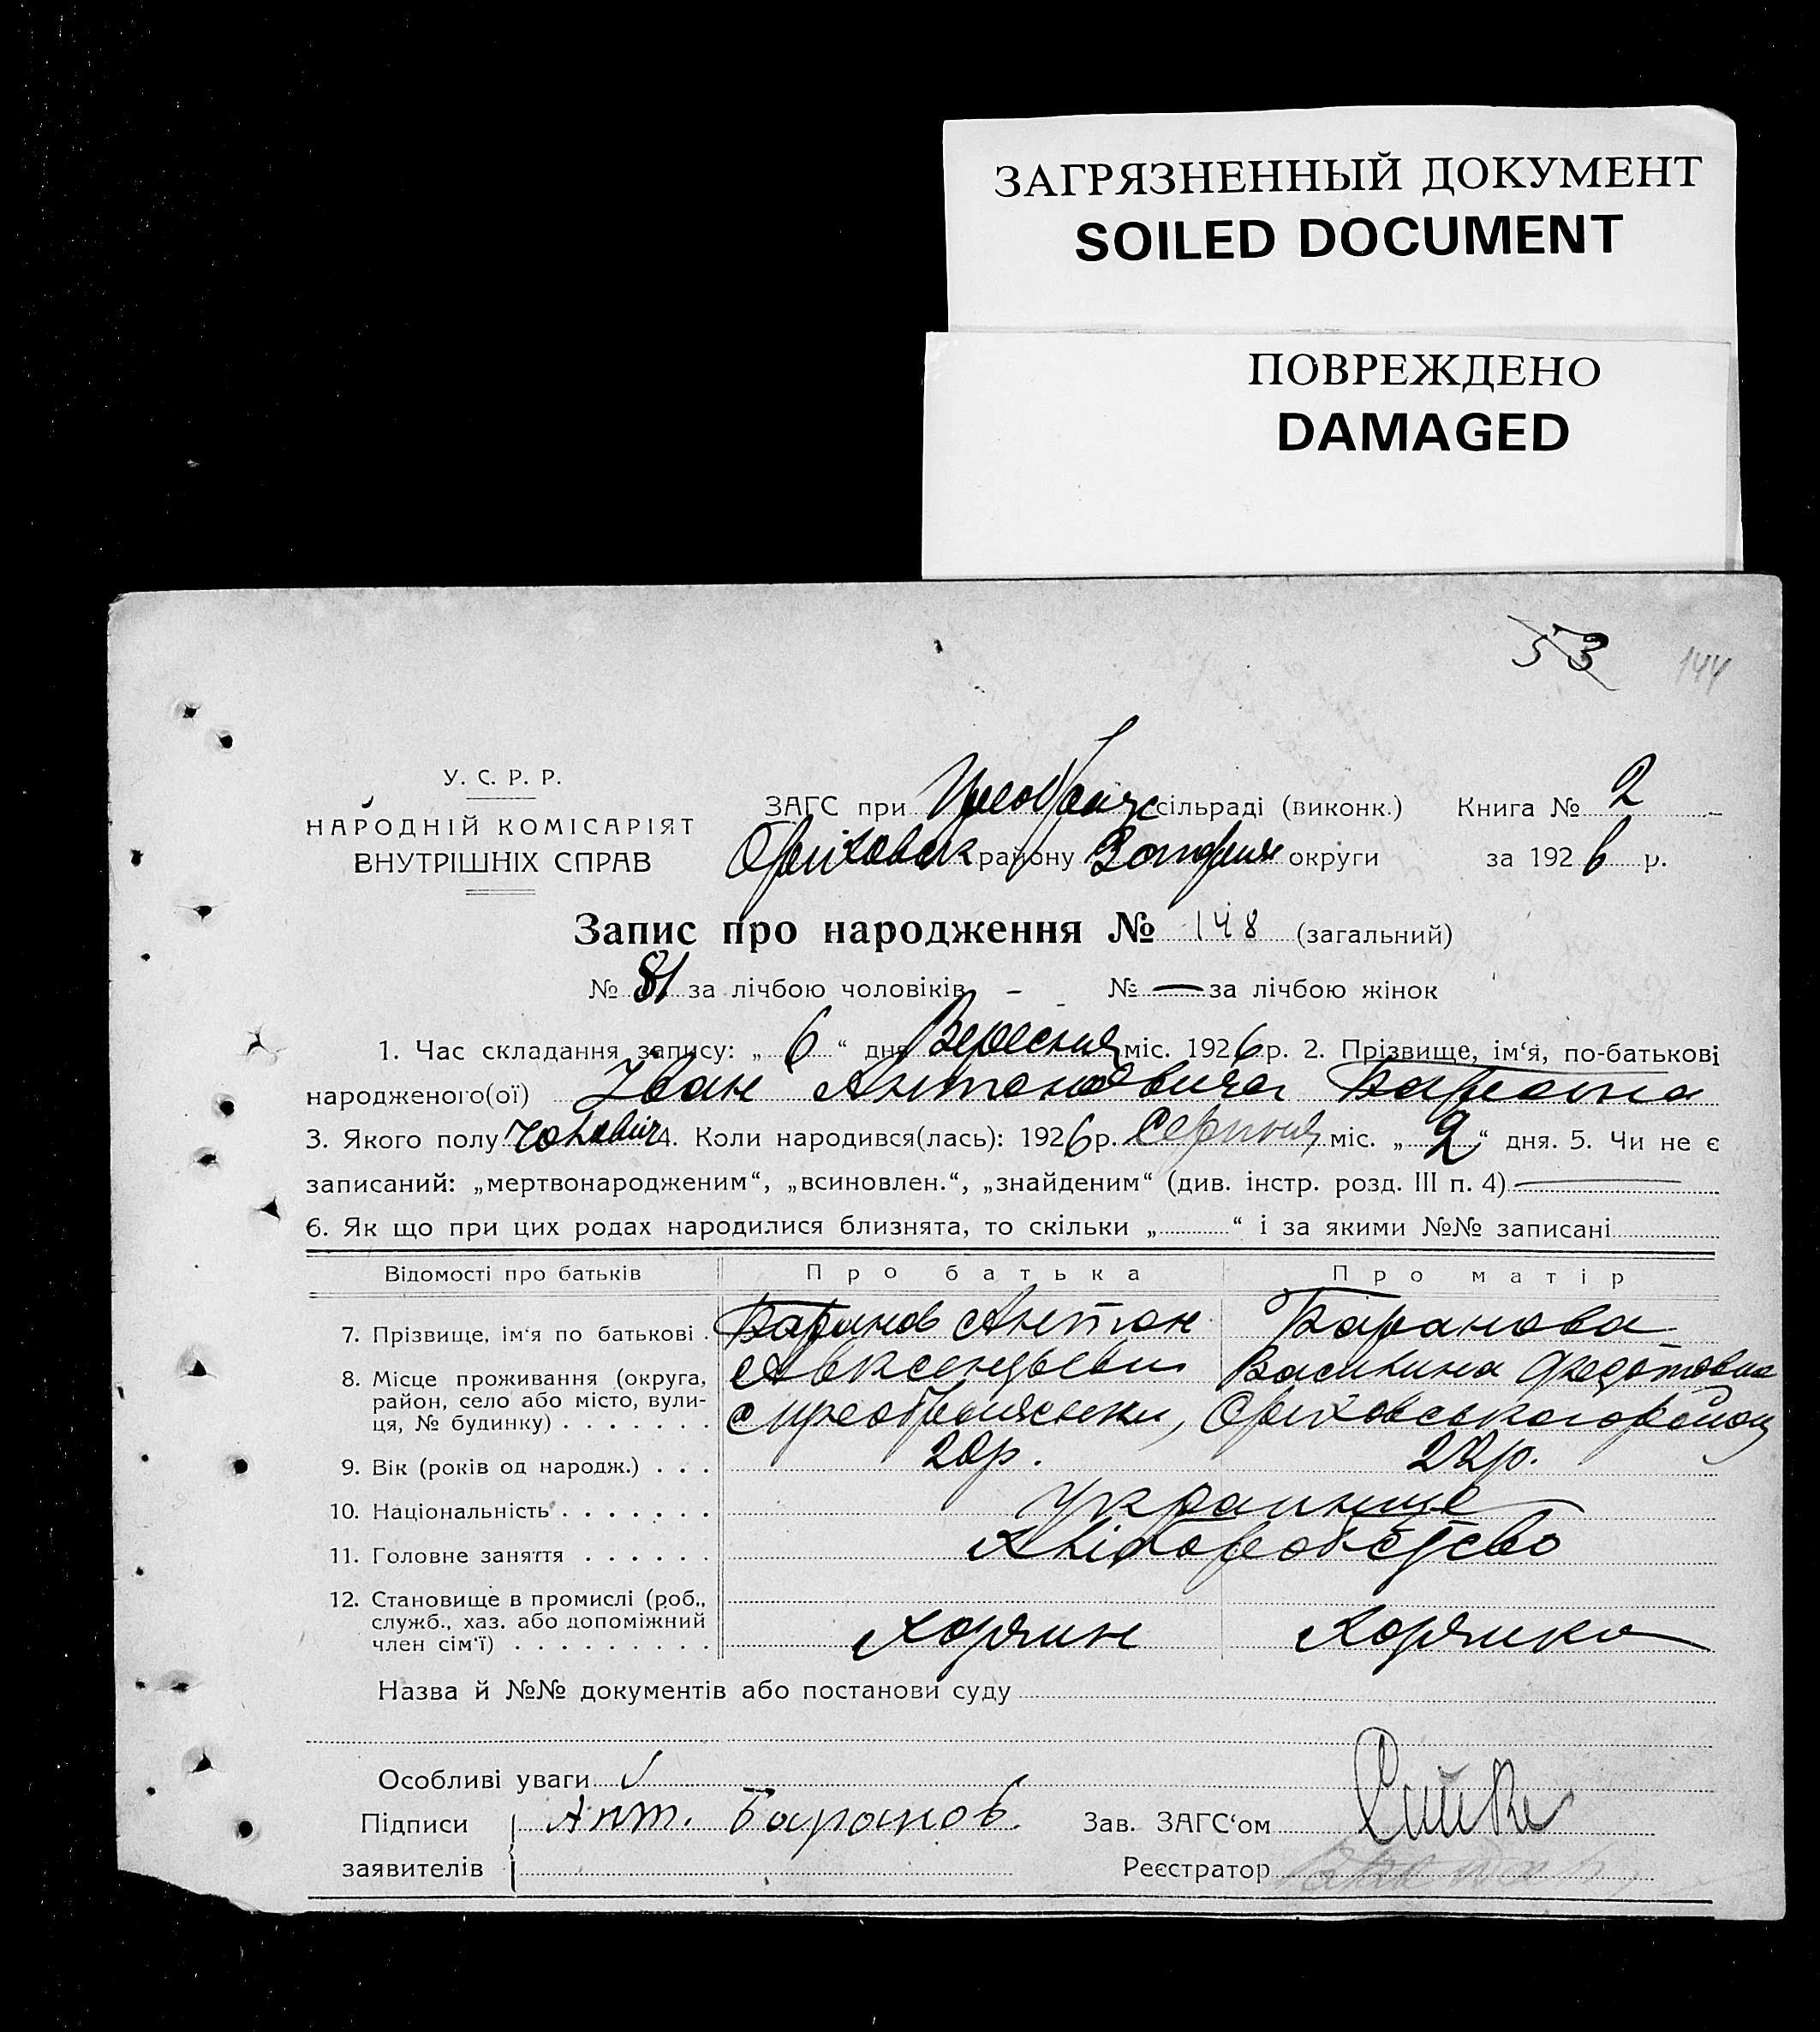 ЗАГРЯЗНЕННЫЙ ДОКУМЕНТ
SOILED DOCUMENT
ПОВРЕЖДЕНО
DAMAGED
53 144
У. С. Р. Р.
НАРОДНІЙ КОМІСАРІЯТ
ВНУТРІШНІХ СПРАВ
ЗАГС при Преображ сільраді (виконк.) Книга № 2
Оріховськ району Запоріж округи за 1926 р.
Запис про народження № 148 (загальний)
№ 81 за лічбою чоловіків - № — за лічбою жінок
1. Час складання запису: „ 6 “ дня Вересня міс. 1926 р. 2. Прізвище, ім‘я, по-батькові
народженого(ої) Іван Антонович Баранов
3. Якого полу чоловіч 4. Коли народився(лась): 1926 р. Серпня міс. „ 2 “ дня. 5. Чи не є
записаний: „мертвонародженим“, „всиновлен.“, „знайденим“ (див. інстр. розд. III п. 4) —
6. Як що при цих родах народилися близнята, то скільки „ “ і за якими №№ записані
Відомості про батьків Про батька Про матір
7. Прізвище, ім‘я по батькові . Баранов Антон Баранова
8. Місце проживання (округа, район, село або місто, вулиця, № будинку) . . . . . . . Авксентьевич Василина Федотовна
с Преображенки, Оріховського району
9. Вік (років од народж.) . . . 20р. 22р.
10. Національність . . . . . . . Українці
11. Головне заняття . . . . . . Хліборобство
12. Становище в промислі (роб., служб., хаз. або допоміжний член сім‘ї) . . . . . . . . . Хозяин Хозяйка
Назва й №№ документів або постанови суду
Особливі уваги
Підписи Ант. Баранов. Зав. ЗАГС‘ом
заявителів Реєстратор